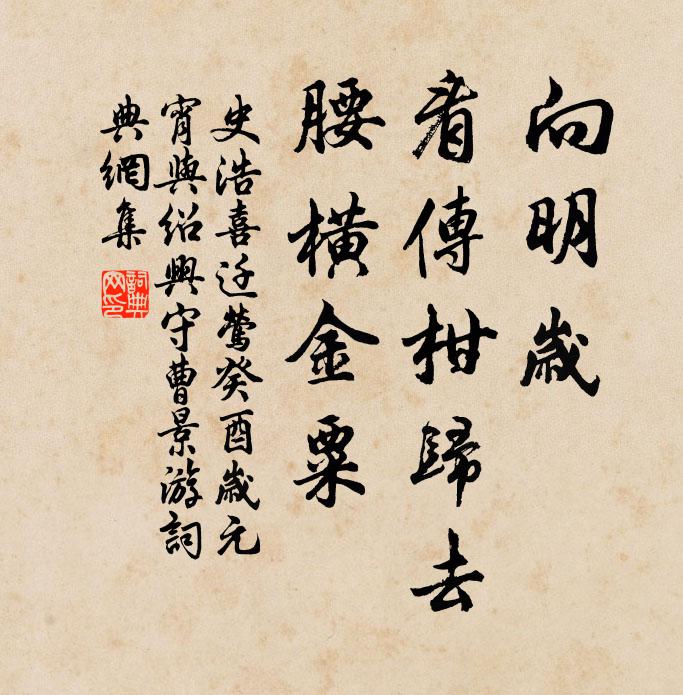 向明歲
看傳柑歸去
腰橫金粟
史浩喜迁鶯癸酉歲元
宵與紹興守曹景游詞
典網集
詞典
网印